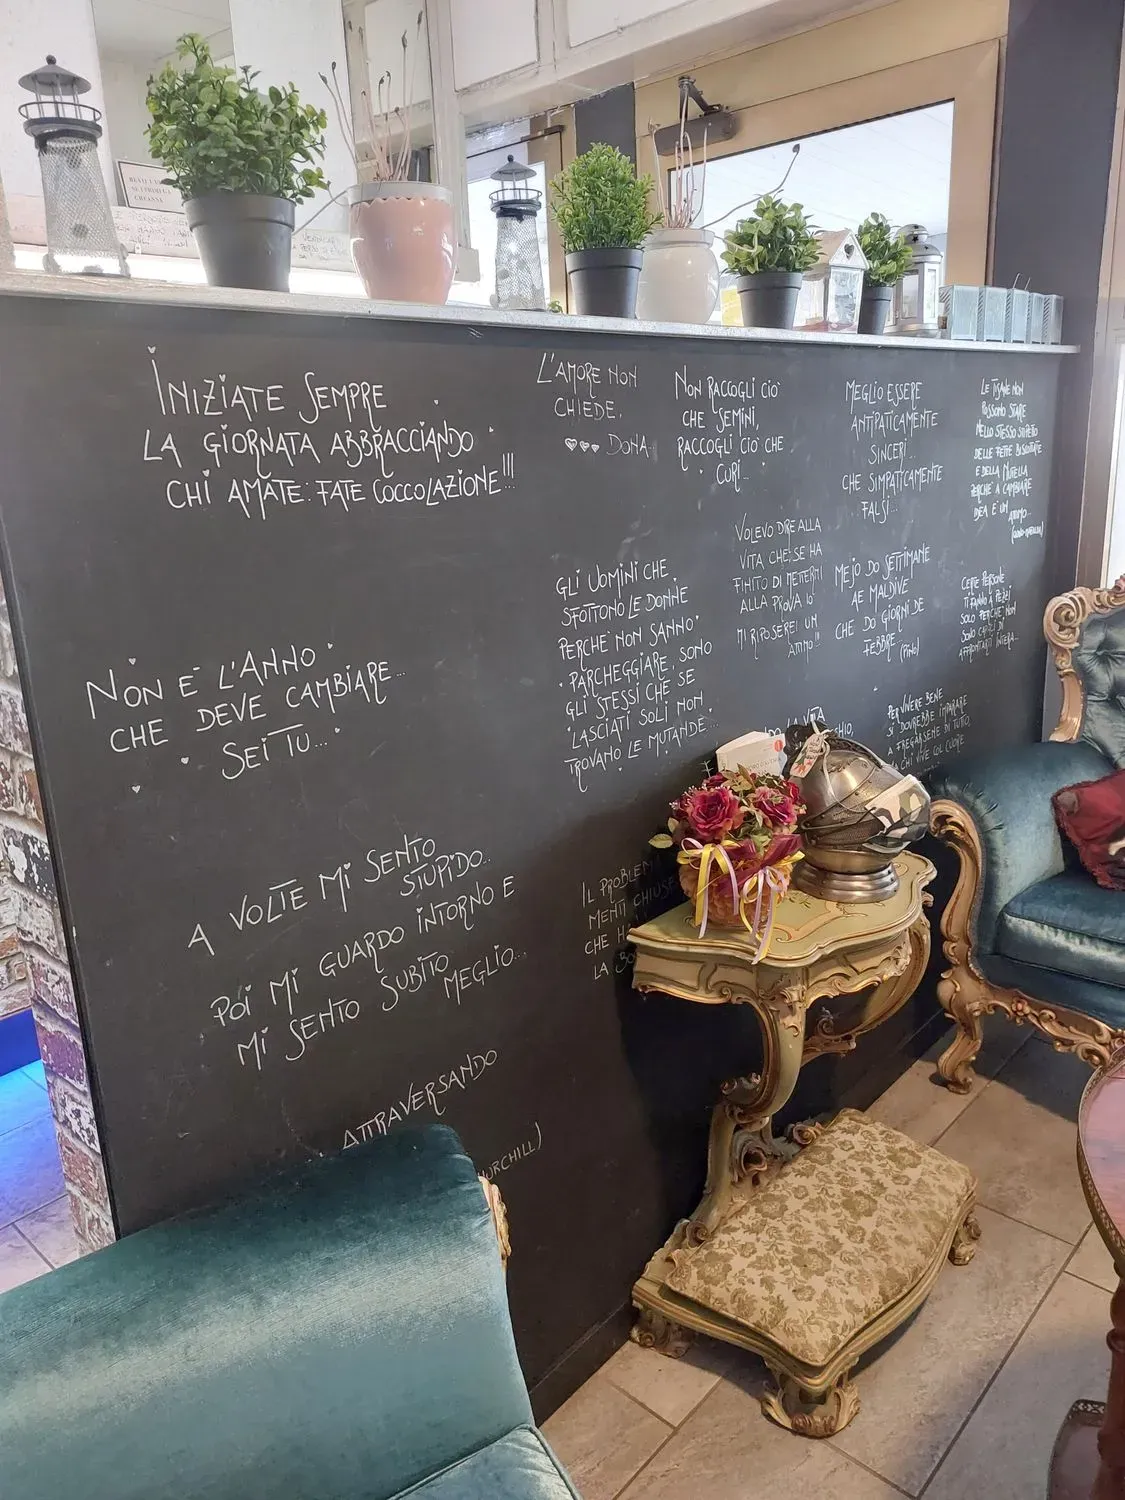 INIZIATE SEMPRE
LA GIORNATA ABBRACCIANDO
CHI AMATE: FATE COCCOLAZIONE!!!
L'AMORE NON
CHIEDE,
DONA
NON RACCOGLI CIÒ
CHE SEMINI,
RACCOGLI CIÒ CHE
CURI...
MEGLIO ESSERE
ANTIPATICAMENTE
SINCERI...
CHE SIMPATICAMENTE
FALSI...
LE TISANE NON
POSSONO STARE
NELLO STESSO STIPETTO
DELLE FETTE BISCOTTATE
E DELLA NUTELLA
PERCHÈ A CAMBIARE
IDEA È UN
ATTIMO...
NON È L'ANNO
CHE DEVE CAMBIARE...
SEI TU...
GLI UOMINI CHE
SFOTTONO LE DONNE
PERCHÈ NON SANNO
PARCHEGGIARE, SONO
GLI STESSI CHE SE
LASCIATI SOLI NON
TROVANO LE MUTANDE...
VOLEVO DIRE ALLA
VITA CHE, SE HA
FINITO DI METTERMI
ALLA PROVA IO
MI RIPOSEREI UN
ATTIMO!!
MEJO DO SETTIMANE
AE MALDIVE
CHE DO GIORNI DE
FEBBRE... (PINO)
CERTE PERSONE
TI FANNO A PEZZI
SOLO PERCHÈ NON
SONO CAPACI DI
AFFRONTARTI INTERA...
PER VIVERE BENE
SI DOVREBBE IMPARARE
A FREGARSENE DI TUTTO,
MA CHI VIVE COL CUORE
LA VITA
A VOLTE MI SENTO
STUPIDO...
POI MI GUARDO INTORNO E
MI SENTO SUBITO
MEGLIO...
IL PROBLEM
MENTI CHIUSE
CHE HA
LA BO
ATTRAVERSANDO
HURCHILL)